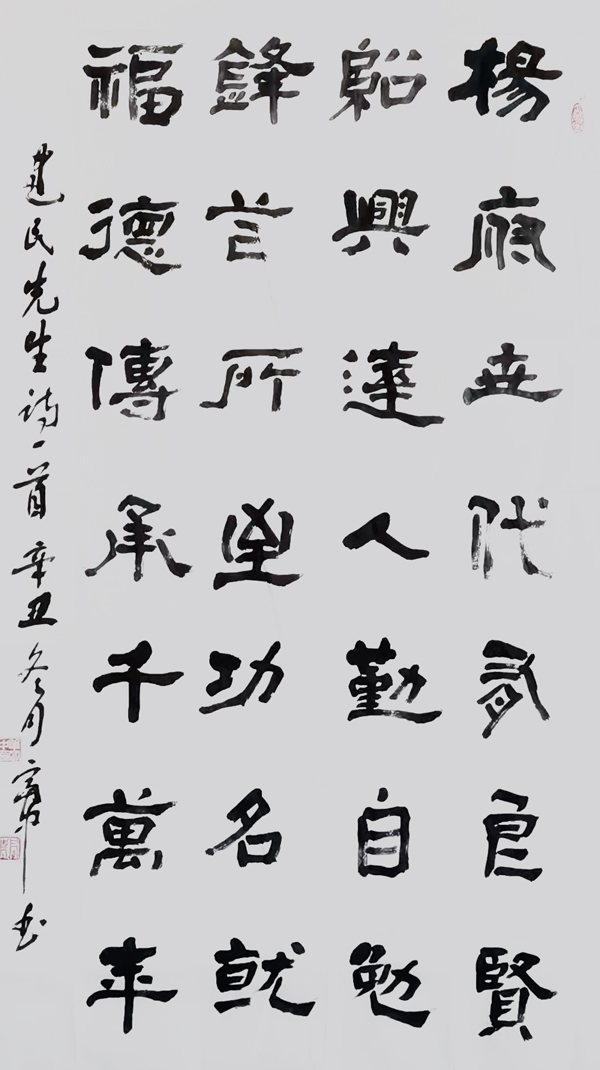 楊府世代多良賢
興達人勤自勉
鋒芒所功名就
福德傳承千萬年
建民先生詩一首 辛丑冬月 书